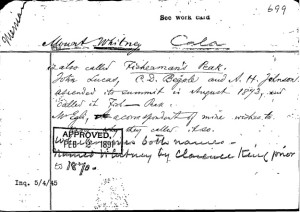 See work card
699
Mount Whitney Cala
is also called Fisherman's Peak.
John Lucas, C. D. Begole and A. H. Johnson
ascended to summit in August 1873, and
called it
correspondent of mine wishes to
why they called it so.
APPROVED,
FEB 189
both names.
Named Whitney by Clarence King prior
to 1870.
Inq. 5/4/45